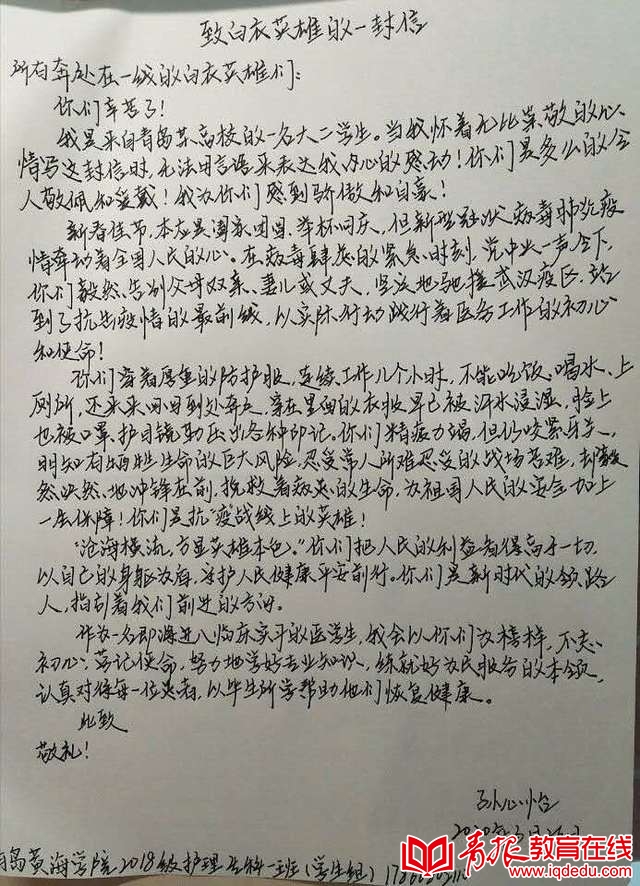 致白衣英雄的一封信
所有奔赴在一线的白衣英雄们：
你们辛苦了！
我是来自青岛某高校的一名大二学生。当我怀着无比崇敬的心
情写这封信时，无法用言语来表达我内心的感动！你们是多么的令
人敬佩和爱戴！我为你们感到骄傲和自豪！
新春佳节，本应是阖家团圆，举杯同庆，但新型冠状病毒肺炎疫
情牵动着全国人民的心。在病毒肆虐的紧急时刻，党中央一声令下，
你们毅然告别父母双亲、妻儿或丈夫，坚决地驰援武汉疫区，站
到了抗击疫情的最前线，以实际行动践行着医务工作的初心
和使命！
你们穿着厚重的防护服，连续工作几个小时，不能吃饭、喝水、上
厕所，还来来回回到处奔走，穿在里面的衣服早已被汗水浸湿，脸上
也被口罩、护目镜勒压出各种印记。你们精疲力竭，但仍咬紧牙关，
明知有牺牲生命的巨大风险，忍受常人所难忍受的战场苦难，却毅
然决然地冲锋在前，挽救着病患的生命，为祖国人民的安全加上
一层保障！你们是抗“疫”战线上的英雄！
“沧海横流，方显英雄本色。”你们把人民的利益看得高于一切，
以自己的身躯为盾，守护人民健康平安前行。你们是新时代的领路
人，指引着我们前进的方向。
作为一名即将进入临床实习的医学生，我会以你们为榜样，不忘
初心、牢记使命，努力地学好专业知识，练就好为民服务的本领，
认真对待每一位患者，以毕生所学帮助他们恢复健康。
此致
敬礼！
孙心怡
2020年3月
青岛黄海学院2018级护理专科一班（学生组）
青报教育在线
www.iqdedu.com